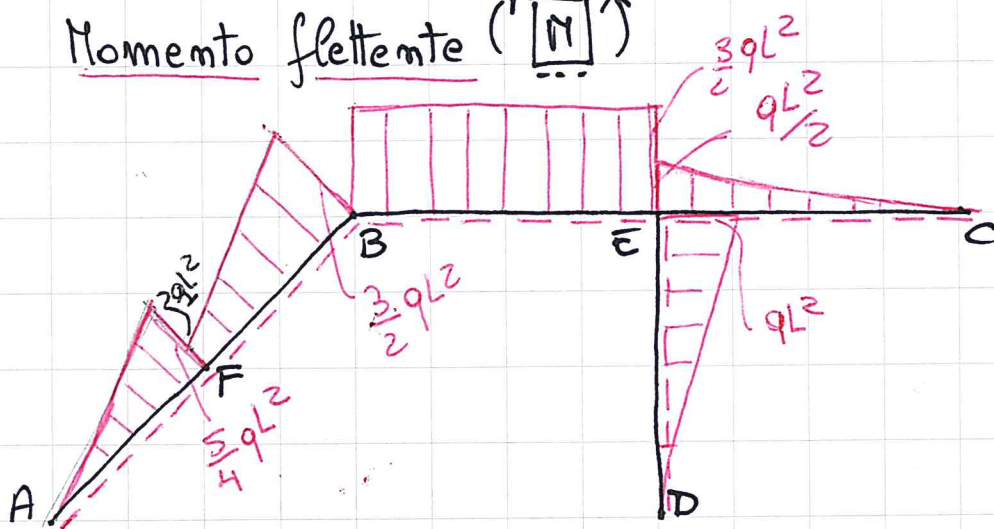 Momento flettente ("M")
3/2 qL²
qL²/2
B
E
C
3/2 qL²
qL²
F
5/4 qL²
A
D